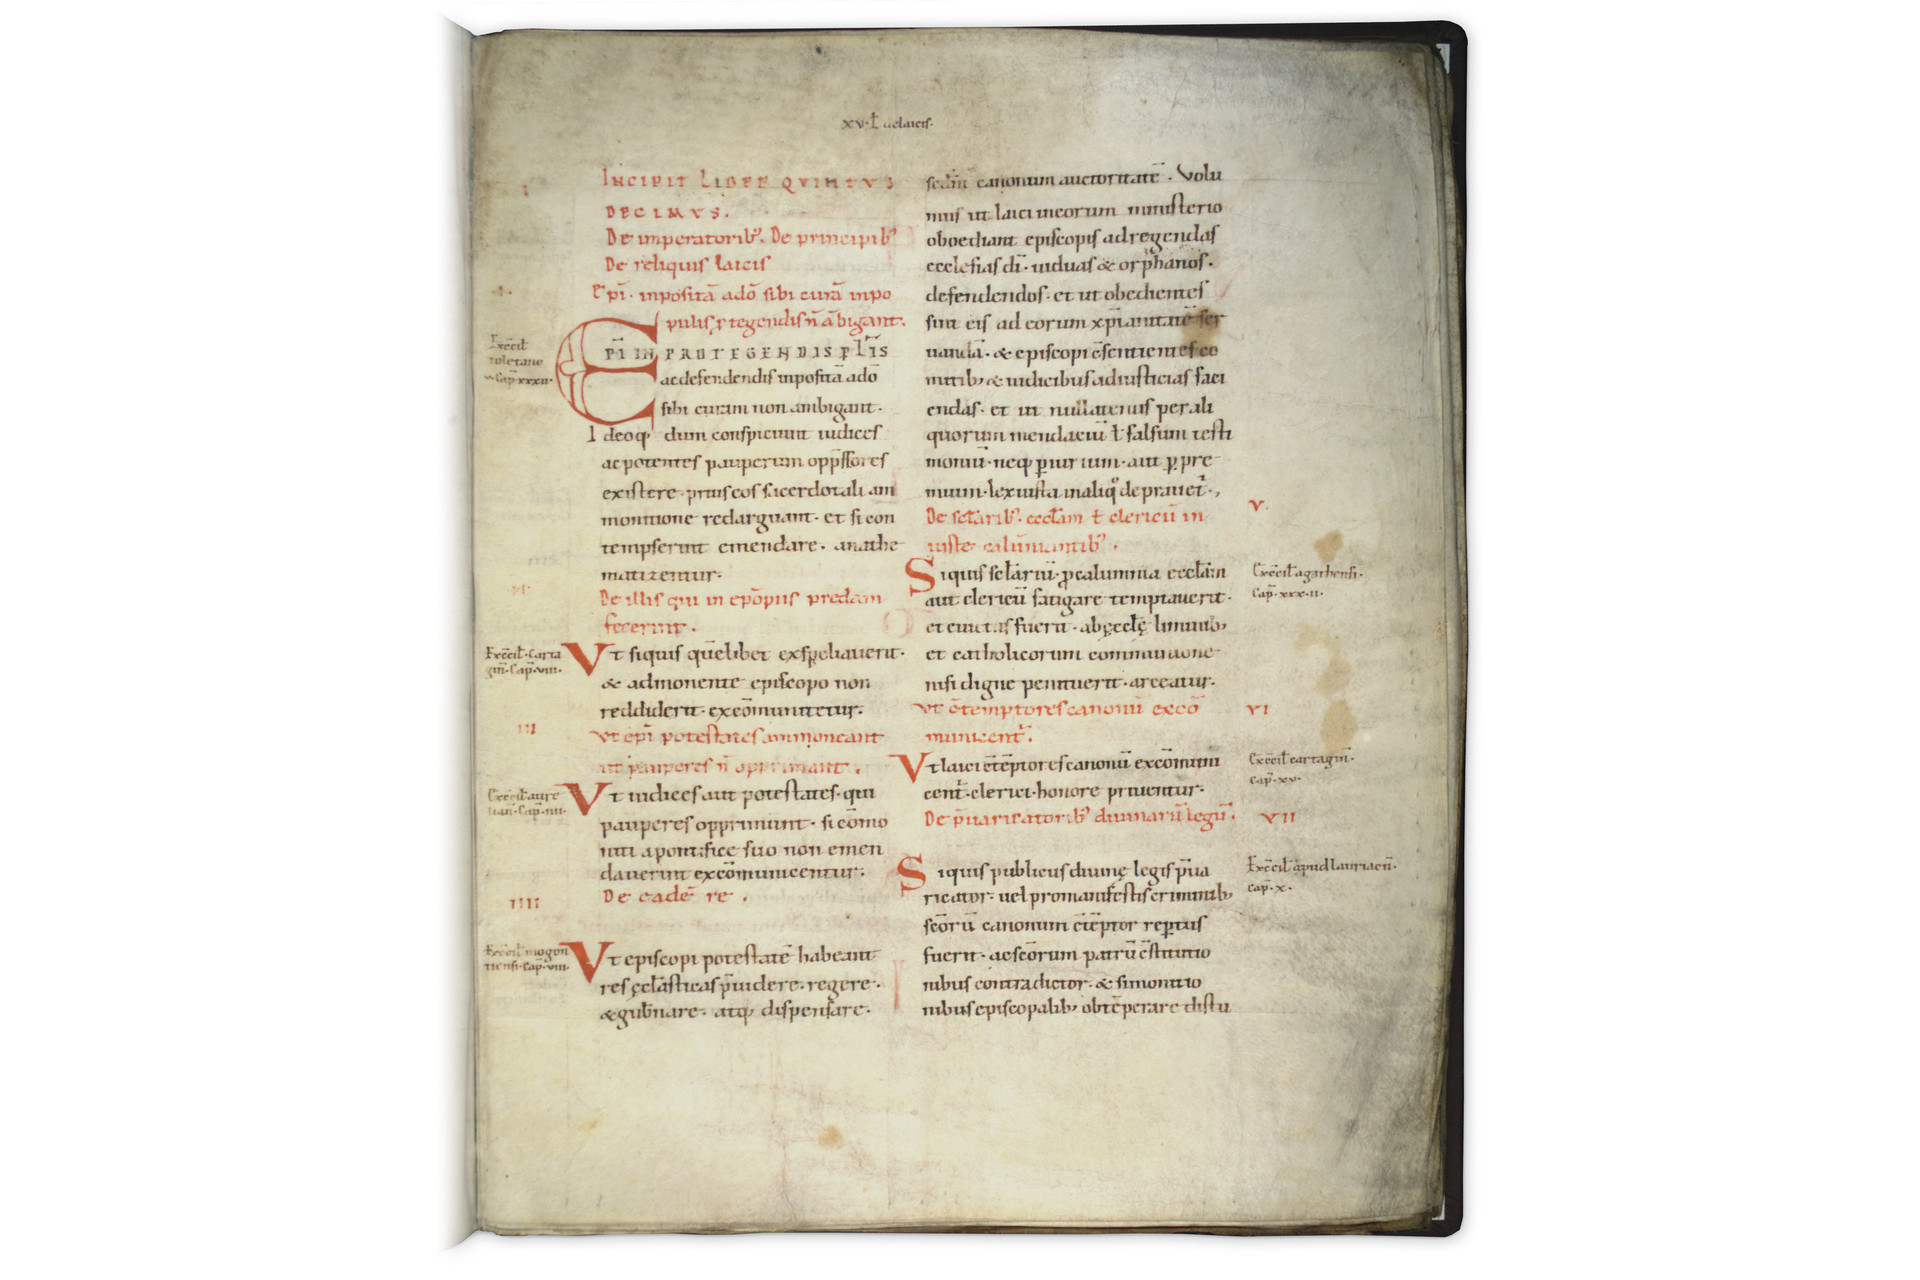 xv · ł de laicis ·
Incipit Liber quintus
decimus.
De imperatorib᷒. De principib᷒
De reliquis laicis
Ep̄i · inpositā a dō sibi curā in po
pulis ꝓtegendis n̄ ābigant.
Ex c̄cil̄
toletano
cap̄ xxxii·
EP̄I IN PROTEGENDIS PL̄IS
ac defendendis inpositā a dō
sibi curam non ambigant·
Ideoq; dum conspiciunt iudices
ac potentes pauperum opp̄ssores
existere· prius eos sacerdotali am
monitione redarguant· et si con
tempserint emendare· anathe
matizentur·
De illis qui in ep̄o p̄us predam
fecerint·
Ex c̄cil̄· carta
gin̄· cap̄· viii·
Vt siquis quēlibet exspoliauerit·
& admonente episcopo non
reddiderit· excōmunicetur·
III
Vt ep̄i potestates ammoneant
ut pauperes n̄ opprimant·
Ex c̄cil̄ aure
lian̄· cap̄· iiii·
Vt iudices aut potestates· qui
pauperes opprimunt· si cōmo
niti a pontifice suo non emen
dauerint excōmunicentur·
IIII
De eadē re·
Ex c̄cil̄ mogon
tiensi· cap̄· viii·
Vt episcopi potestatē habeant
res ęcl̄asticas p̄uidere· regere·
& gub̄nare· atq; dispensare·
sc̄dm̄ canonum auctoritatē· Volu
mus ut laici in eorum ministerio
oboediant episcopis ad regendas
ecclesias dī· uiduas & orphanos·
defendendos· et ut obedientes
sint eis ad eorum xp̄ianitatē ser
uandā· & episcopi c̄sentientes co
mitib; & iudicibus ad iusticias faci
endas· et ut nullatenus per ali
quorum mendaciū ł falsum testi
moniū· neq; ꝑiurium· aut ꝓ pre
mium· lex iusta in aliq̊ deprauet᷑·
V
De sclārib᷒· eccl̄am ł clericū in
iuste calūniantib᷒·
Ex c̄cil̄ agathensi·
cap̄· xxx·ii·
Siquis sclāriū· ꝑ calumnia eccl̄am
aut clericū fatigare temptauerit·
et euictus fuerit· ab ęccl̄ę liminib;
et catholicorum communione
nisi digne penituerit· arceatur·
VI
Vt c̄temptores canonū excō
municent᷑·
Ex c̄cil̄ cartagin̄·
cap̄· xv·
Vt laici c̄tēptores canonū excōmuni
cent᷑· clerici· honore priuentur·
VII
De p̄uaricatorib᷒ diuinarū legū·
Ex c̄cil̄ apud lauriacū·
cap̄· x·
Siquis publicus diuinę legis p̄ua
ricator· uel pro manifestis criminib;
sc̄orū canonum c̄tēptor rep̄tus
fuerit· ac sc̄orum patrū c̄stitutio
nibus contradictor· & simonitio
nibus episcopalib; obtēperare distu